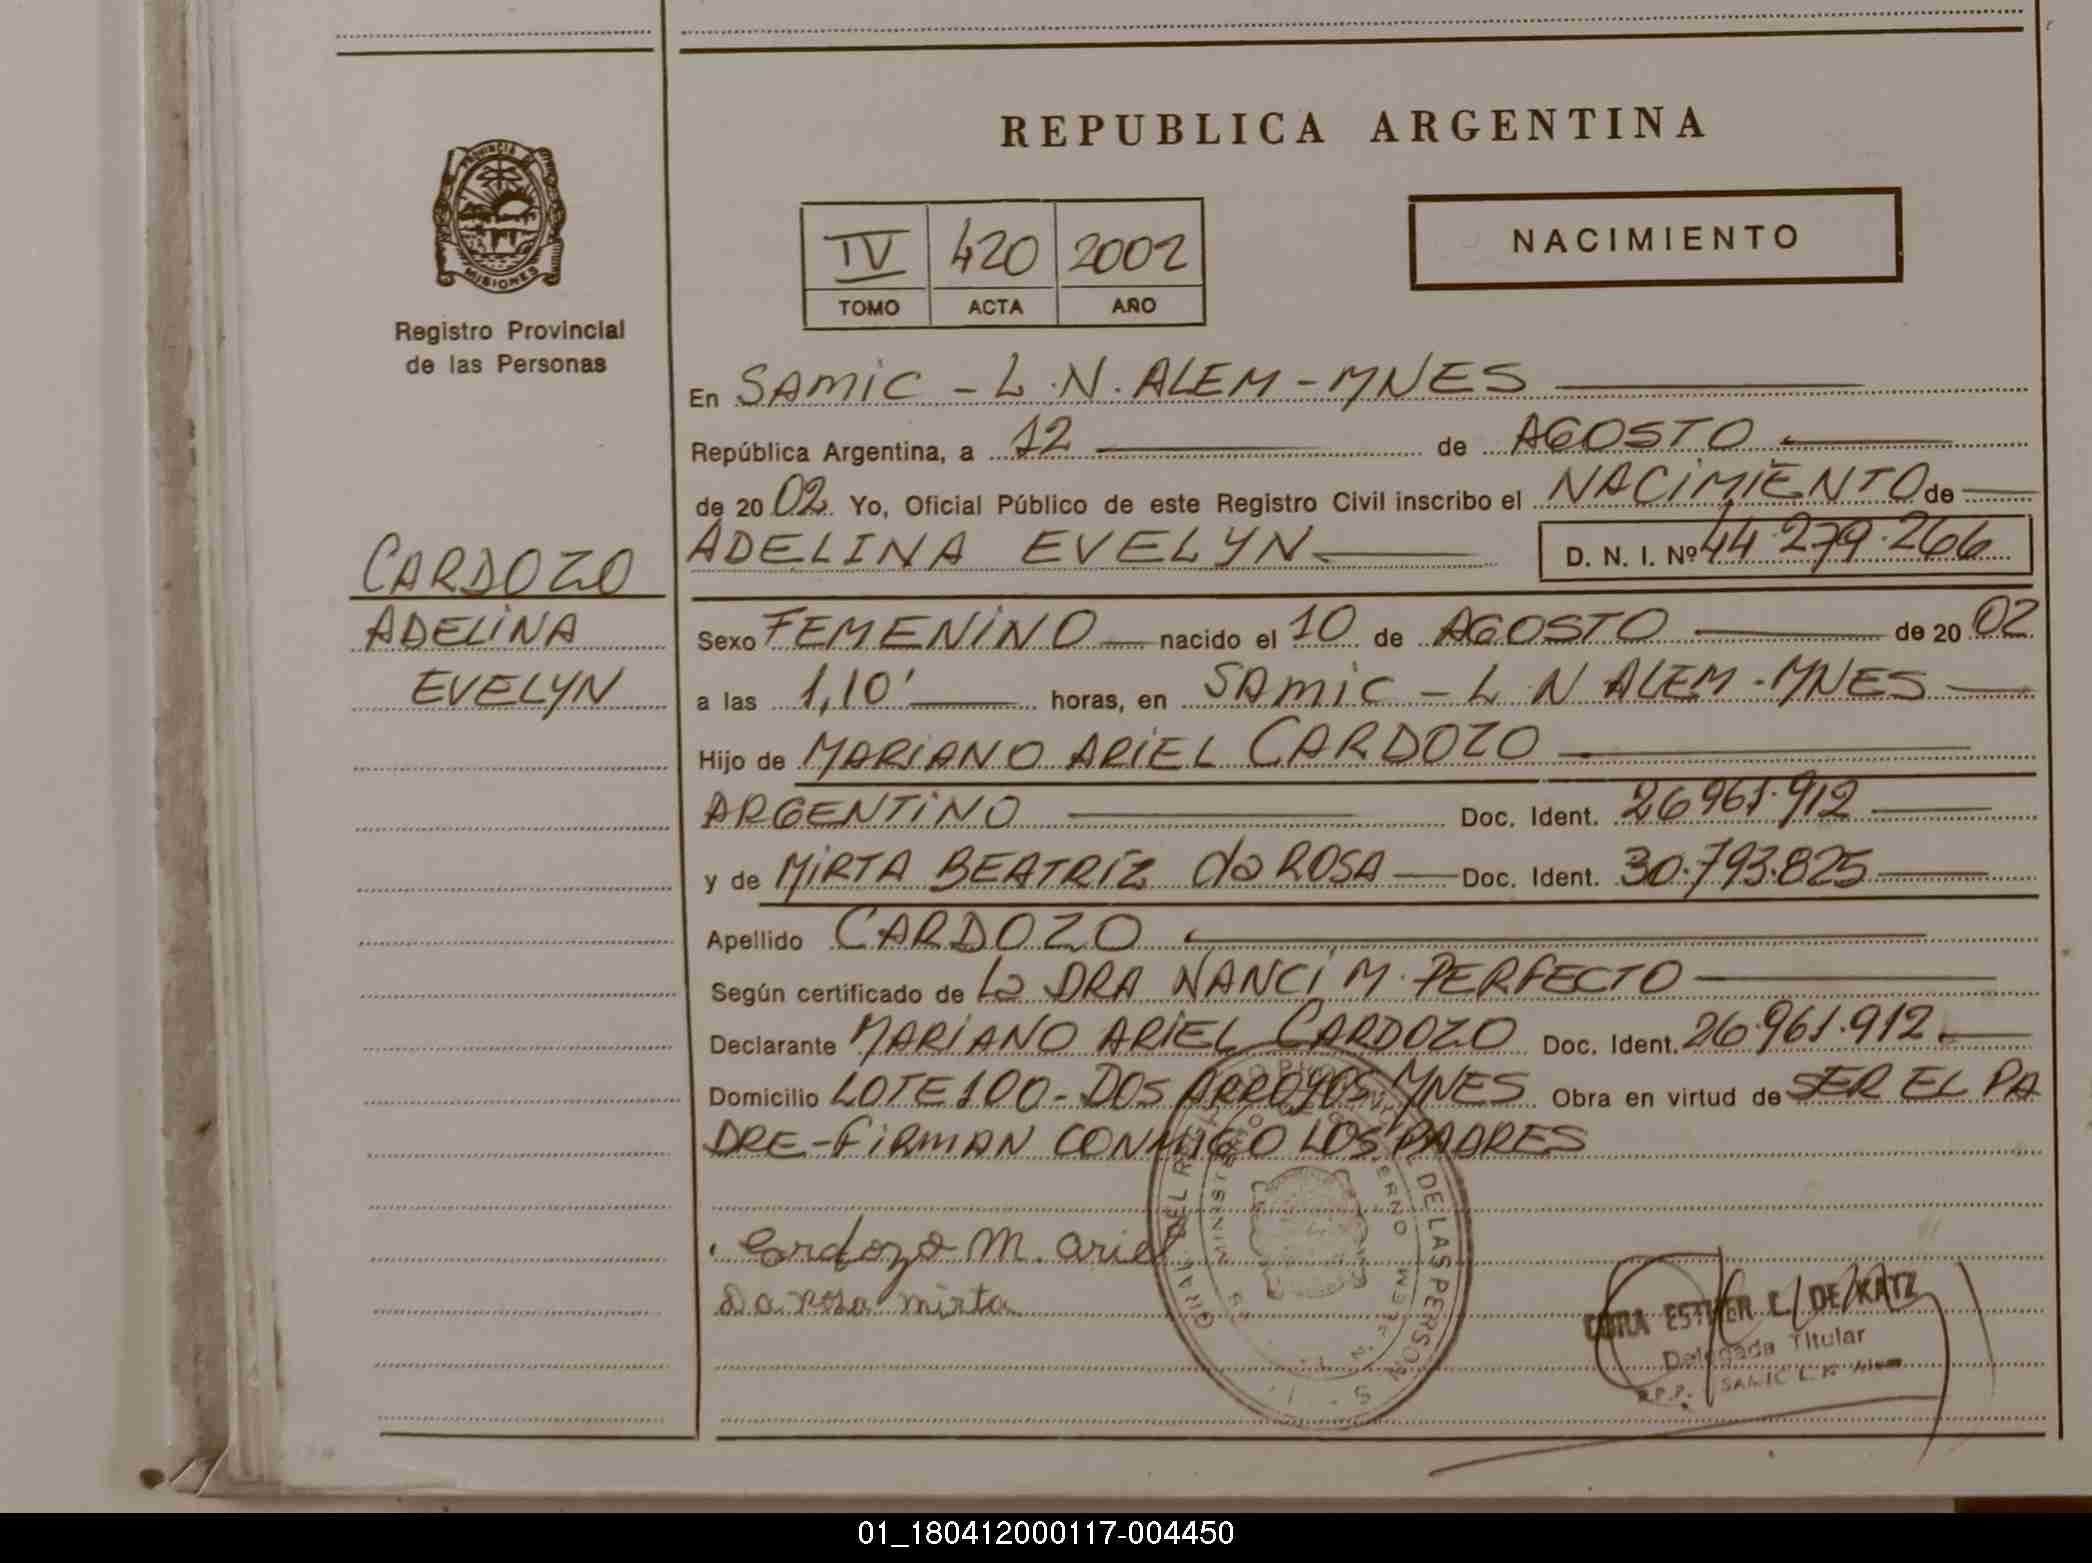 REPUBLICA ARGENTINA
PROVINCIA DE
MISIONES
Registro Provincial
de las Personas
IV 420 2002
TOMO ACTA AÑO
NACIMIENTO
En SAMIC - L.N. ALEM - MNES
República Argentina, a 12 de AGOSTO
de 2002. Yo, Oficial Público de este Registro Civil inscribo el NACIMIENTO de
ADELINA EVELYN D. N. I. Nº 44.279.266
CARDOZO
ADELINA
EVELYN
Sexo FEMENINO nacido el 10 de AGOSTO de 2002
a las 1,10' horas, en SAMIC - L N ALEM - MNES
Hijo de MARIANO ARIEL CARDOZO
ARGENTINO Doc. Ident. 26961.912
y de MIRTA BEATRIZ da ROSA Doc. Ident. 30.793.825
Apellido CARDOZO
Según certificado de La DRA NANCI M. PERFECTO
Declarante MARIANO ARIEL CARDOZO Doc. Ident. 26.961.912.
Domicilio LOTE 100 - DOS ARROYOS MNES Obra en virtud de SER EL PA
DRE - FIRMAN CONMIGO LOS PADRES
Cardozo M. Ariel
Da rosa mirta
DE LAS PERSONAS
ESTHER L. DE KATZ
Delegada Titular
R.P.P. SAMIC L. N. Alem
01_180412000117-004450